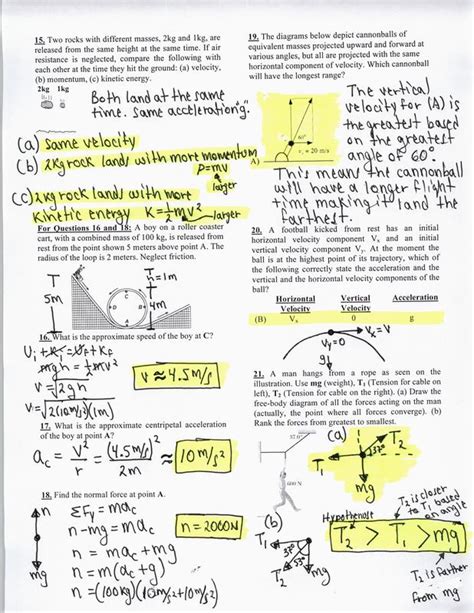 15. Two rocks with different masses, 2kg and 1kg, are
released from the same height at the same time. If air
resistance is neglected, compare the following with
each other at the time they hit the ground: (a) velocity,
(b) momentum, (c) kinetic energy.
2kg 1kg
Both land at the same
time. Same acceleration g.
(a) Same velocity
(b) 2Kg rock lands with more momentum
P=mv
larger
(c) 2kg rock lands with more
kinetic energy K=½mv²
larger
For Questions 16 and 18: A boy on a roller coaster
cart, with a combined mass of 100 kg, is released from
rest from the point shown 5 meters above point A. The
radius of the loop is 2 meters. Neglect friction.
T
5m
h=1m
C
D
B
A
16. What is the approximate speed of the boy at C?
Ui+Ki=Uf+Kf
mgh=½mv²
v=√2gh
v=√2(10m/s²)(1m)
v≈4.5m/s
17. What is the approximate centripetal acceleration
of the boy at point A?
ac=v²/r=(4.5m/s)²/2m≈10m/s²
18. Find the normal force at point A.
n
mg
ΣFy=mac
n-mg=mac
n=mac+mg
n=m(ac+g)
n=(100kg)(10m/s²+10m/s²)
n=2000N
19. The diagrams below depict cannonballs of
equivalent masses projected upward and forward at
various angles, but all are projected with the same
horizontal component of velocity. Which cannonball
will have the longest range?
A)
60°
= 20 m/s
The vertical
velocity for (A) is
the greatest based
on the greatest
angle of 60°.
This means the cannonball
will have a longer flight
time making it land the
farthest.
20. A football kicked from rest has an initial
horizontal velocity component Vx and an initial
vertical velocity component Vy. At the moment the
ball is at the highest point of its trajectory, which of
the following correctly state the acceleration and the
vertical and the horizontal velocity components of the
ball?
Horizontal Vertical Acceleration
Velocity Velocity
(B) Vx 0 g
Vx=V
Vy=0
g
21. A man hangs from a rope as seen on the
illustration. Use mg (weight), T1 (Tension for cable on
left), T2 (Tension for cable on the right). (a) Draw the
free-body diagram of all the forces acting on the man
(actually, the point where all forces converge). (b)
Rank the forces from greatest to smallest.
37.0°
600 N
(a)
T1
T2
37°
mg
T2 is closer
to T1 based
on angle
(b)
T1
37°
T2
mg
Hypotenose
T2 > T1 > mg
T2 is farther
from mg